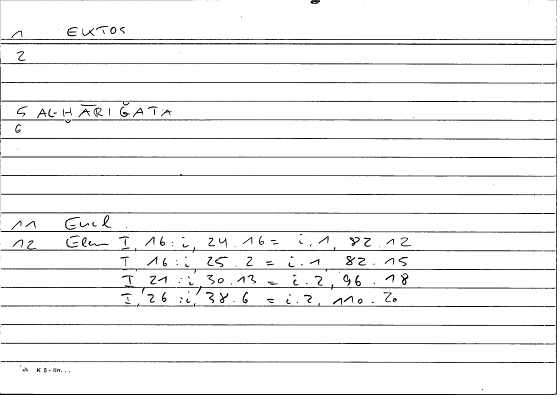 1 EKTOS
2
5 AL-ḪĀRIǦATA
6
11 Eucl.
12 Elem I, 16 : i, 24.16 = i.1, 82.12
I, 16 : i, 25.2 = i.1, 82.15
I, 21 : i, 30.13 = i.2, 96.18
I, 26 : i, 38.6 = i.2, 110.20